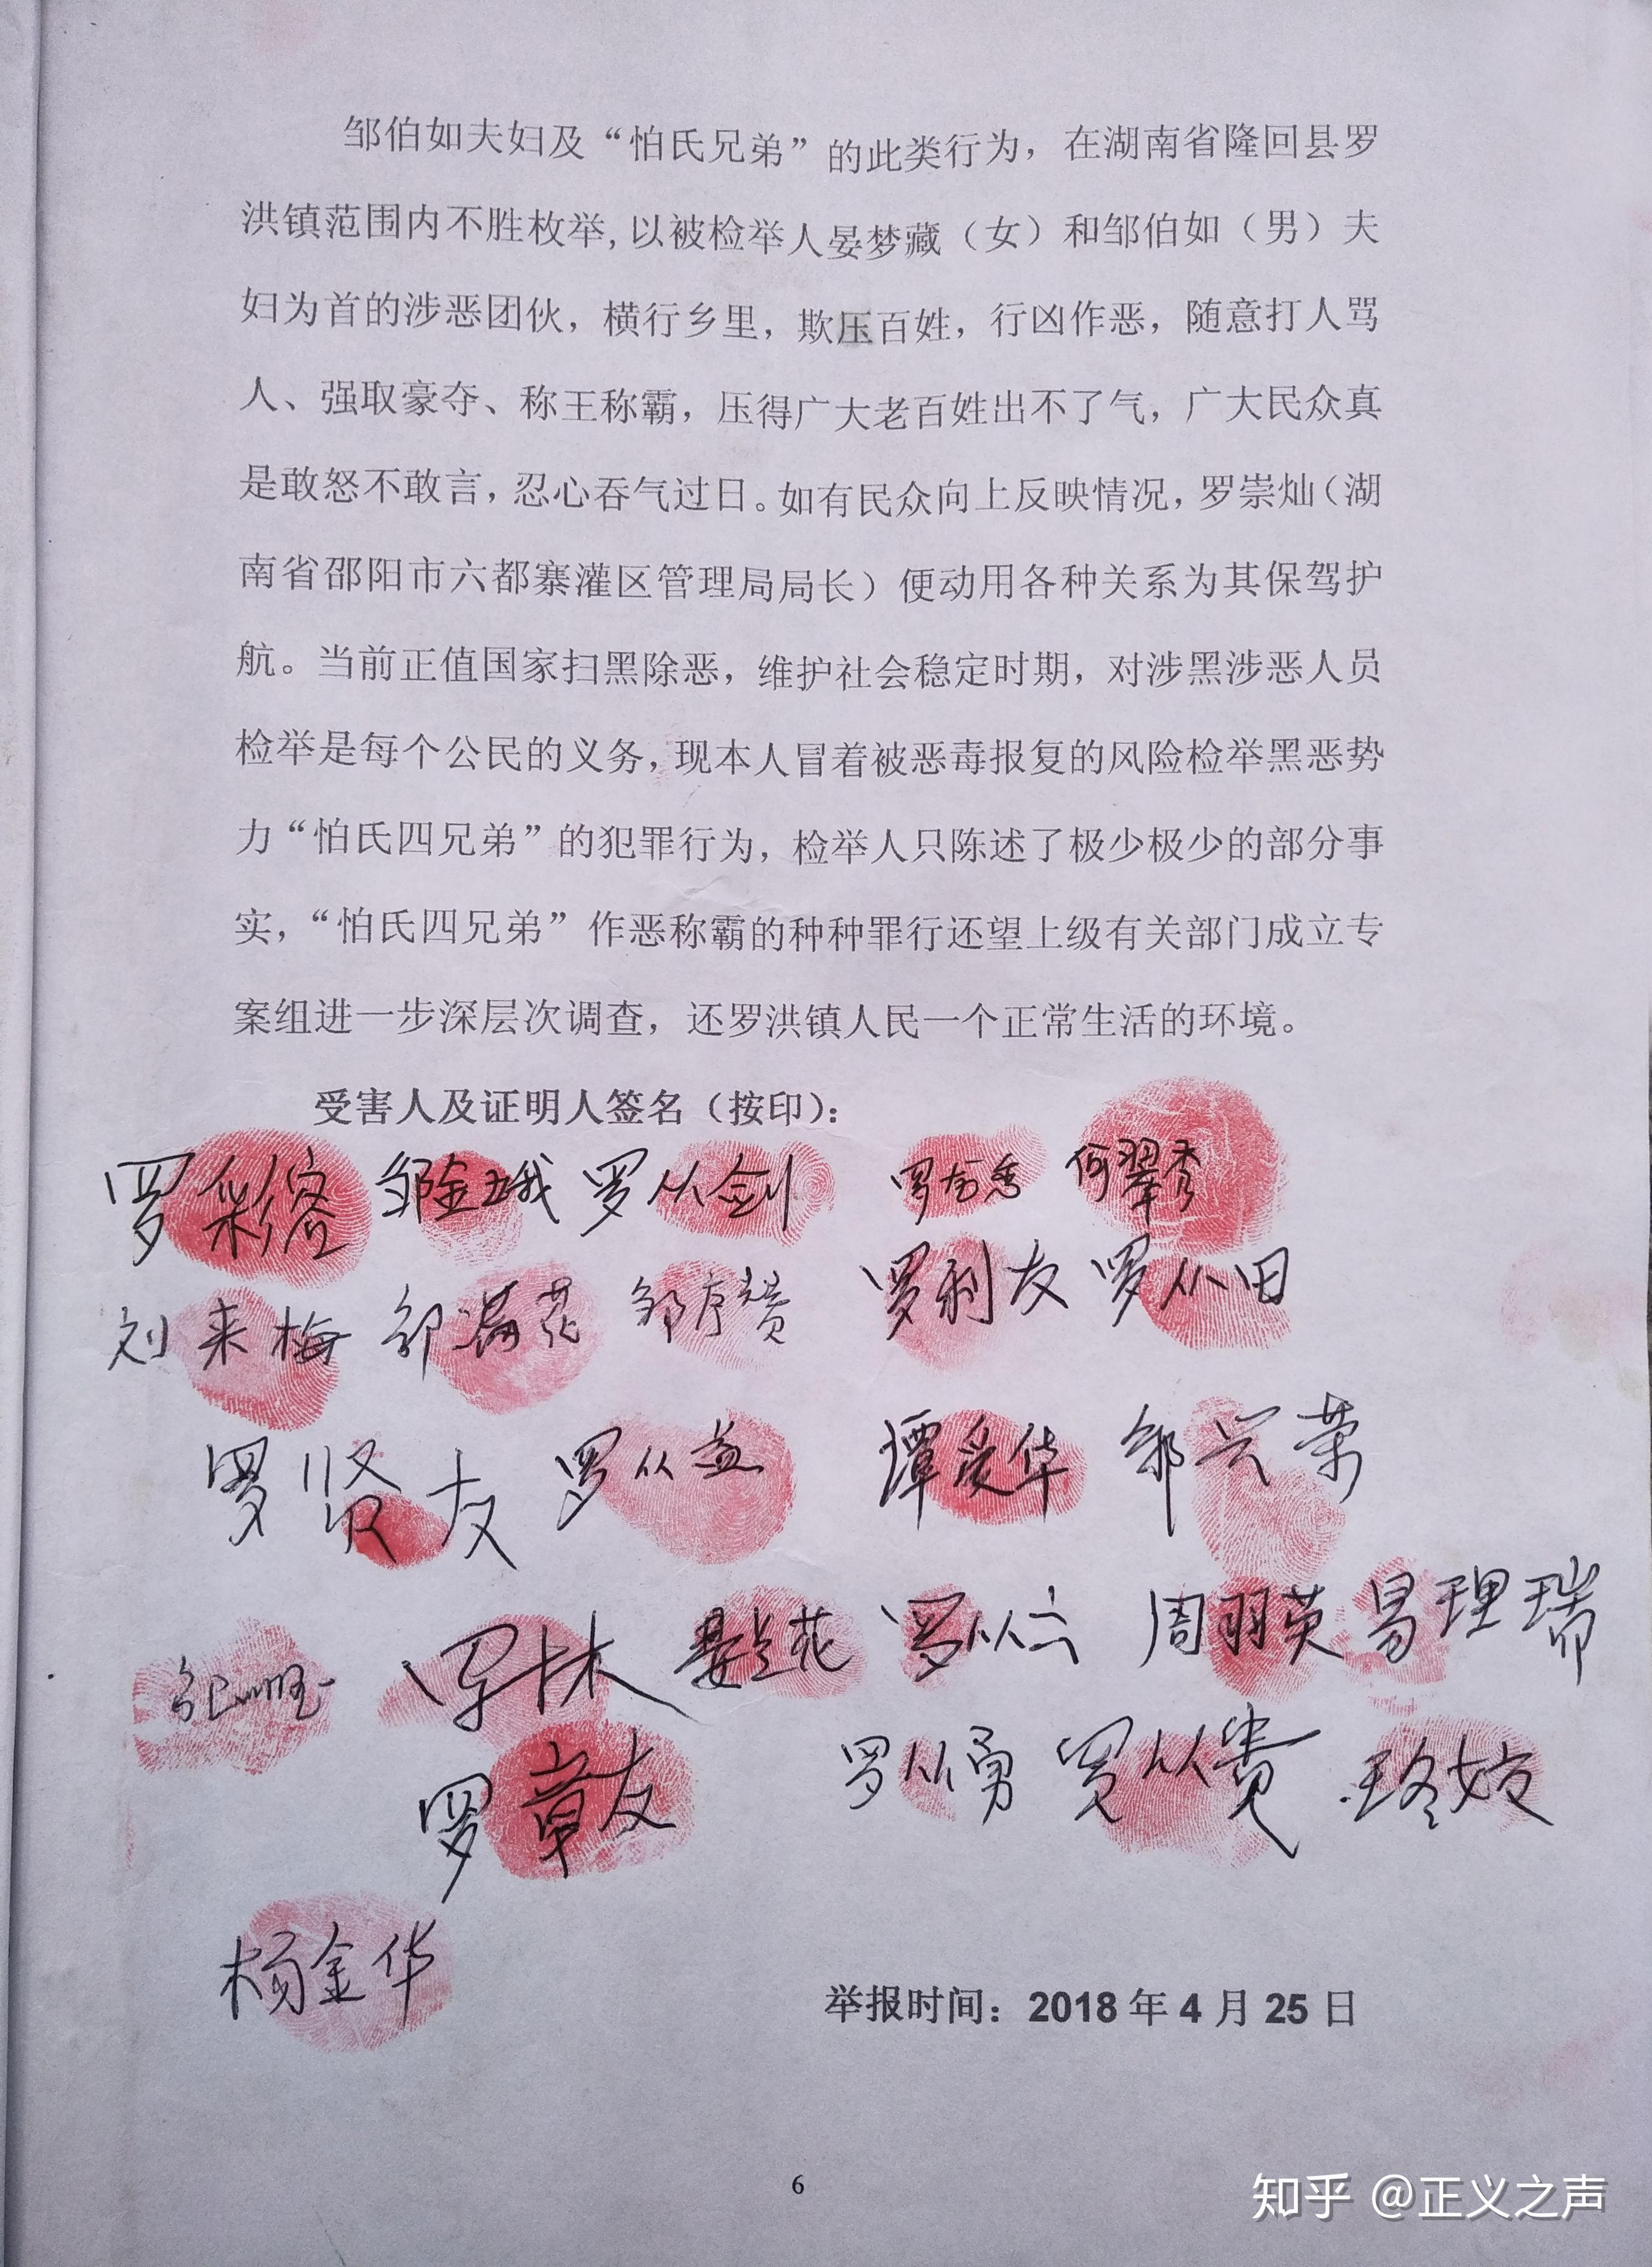 邹伯如夫妇及“怕氏兄弟”的此类行为，在湖南省隆回县罗
洪镇范围内不胜枚举,以被检举人晏梦藏（女）和邹伯如（男）夫
妇为首的涉恶团伙，横行乡里，欺压百姓，行凶作恶，随意打人骂
人、强取豪夺、称王称霸，压得广大老百姓出不了气，广大民众真
是敢怒不敢言，忍心吞气过日。如有民众向上反映情况，罗崇灿（湖
南省邵阳市六都寨灌区管理局局长）便动用各种关系为其保驾护
航。当前正值国家扫黑除恶，维护社会稳定时期，对涉黑涉恶人员
检举是每个公民的义务，现本人冒着被恶毒报复的风险检举黑恶势
力“怕氏四兄弟”的犯罪行为，检举人只陈述了极少极少的部分事
实，“怕氏四兄弟”作恶称霸的种种罪行还望上级有关部门成立专
案组进一步深层次调查，还罗洪镇人民一个正常生活的环境。
受害人及证明人签名（按印）：
罗彩容 邹金娥 罗从剑 何翠秀
刘来梅 邹满花 邹序赞 罗利友 罗从田
罗贤友 罗从益 谭爱华 邹兴荣
罗从六 周羽英 易理瑞
罗章友 罗从勇 罗从贵
杨金华
举报时间：2018年4月25日
6
知乎 @正义之声